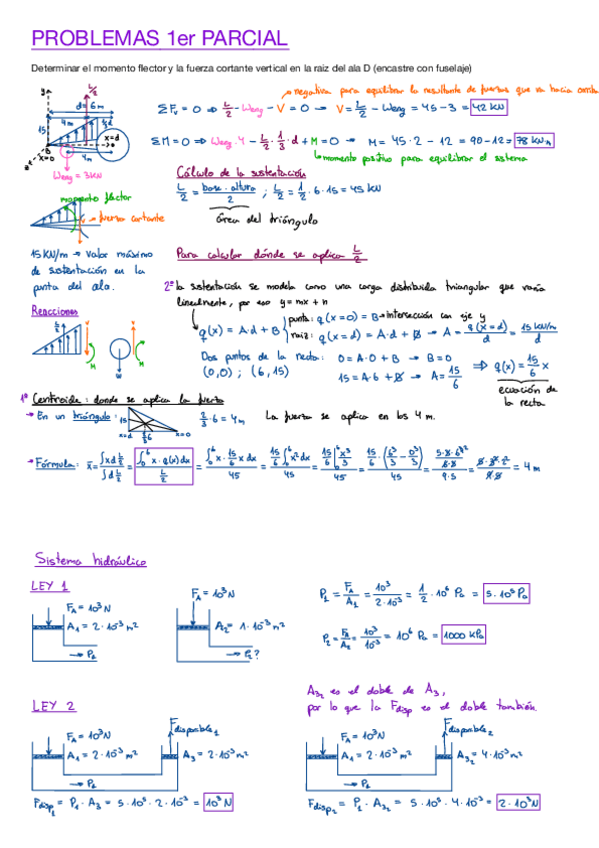 PROBLEMAS 1er PARCIAL
Determinar el momento flector y la fuerza cortante vertical en la raiz del ala D (encastre con fuselaje)
negativa para equilibrar la resultante de fuerzas que va hacia arriba
ΣFv = 0 ⇒ L/2 - Weng - V = 0 → V = L/2 - Weng = 45 - 3 = 42 kN
ΣM = 0 ⇒ Weng · 4 - L/2 · 1/3 · d + M = 0 → M = 45 · 2 - 12 = 90 - 12 = 78 kN m
momento positivo para equilibrar el sistema
L/2
d = 6 m
4m
15
x=d
x=0
4m
Weng = 3kN
momento flector
V → fuerza cortante
Cálculo de la sustentación
L/2 = base · altura / 2 ; L/2 = 1/2 · 6 · 15 = 45 kN
área del triángulo
15 KN/m → valor máximo
de sustentación en la
punta del ala.
Para calcular dónde se aplica L/2
2º la sustentación se modela como una carga distribuida triangular que varía
linealmente, por eso y = mx + n
q(x) = A·d + B
punta: q(x=0) = B → intersección con eje y
raiz: q(x=d) = A·d + B → A = q(x=d)/d = 15 kN/m / d
Reacciones
Dos puntos de la recta: 0 = A·0 + B → B = 0
(0,0) ; (6,15)
15 = A·6 + B → A = 15/6
⇒ q(x) = 15/6 x
ecuación de
la recta
1º Centroide: donde se aplica la fuerza
→ En un triángulo:
15
x=d
x=0
2/3 · 6 = 4m
La fuerza se aplica en los 4 m.
→ Fórmula: x̄ = ∫x d L/2 / ∫d L/2 = ∫₀⁶ x · q(x) dx / L/2 = ∫₀⁶ x · 15/6 x dx / 45 = 15/6 ∫₀⁶ x² dx / 45 = 15/6 [x³/3]₀⁶ / 45 = 15/6 · (6³/3 - 0³/3) / 45 = 4 m
Sistema hidráulico
LEY 1
F_A = 10³N
A₁ = 2·10⁻³ m²
→ P₁
F_A = 10³N
A₂ = 1·10⁻³ m²
→ P₂?
P₁ = F_A/A₁ = 10³/2·10⁻³ = 1/2 · 10⁶ Pa = 5·10⁵ Pa
P₂ = F_A/A₂ = 10³/10⁻³ = 10⁶ Pa = 1000 KPa
LEY 2
A₃₂ es el doble de A₃,
por lo que la Fdisp es el doble también
F_A = 10³N
A₁ = 2·10⁻³ m²
Fdisponible₁
A₃ = 2·10⁻³ m²
→ P₁
Fdisp₁ = P₁ · A₃ = 5·10⁵ · 2·10⁻³ = 10³N
F_A = 10³N
A₁ = 2·10⁻³ m²
Fdisponible₂
A₃₂ = 4·10⁻³ m²
→ P₁
Fdisp₂ = P₁ · A₃₂ = 5·10⁵ · 4·10⁻³ = 2·10³N